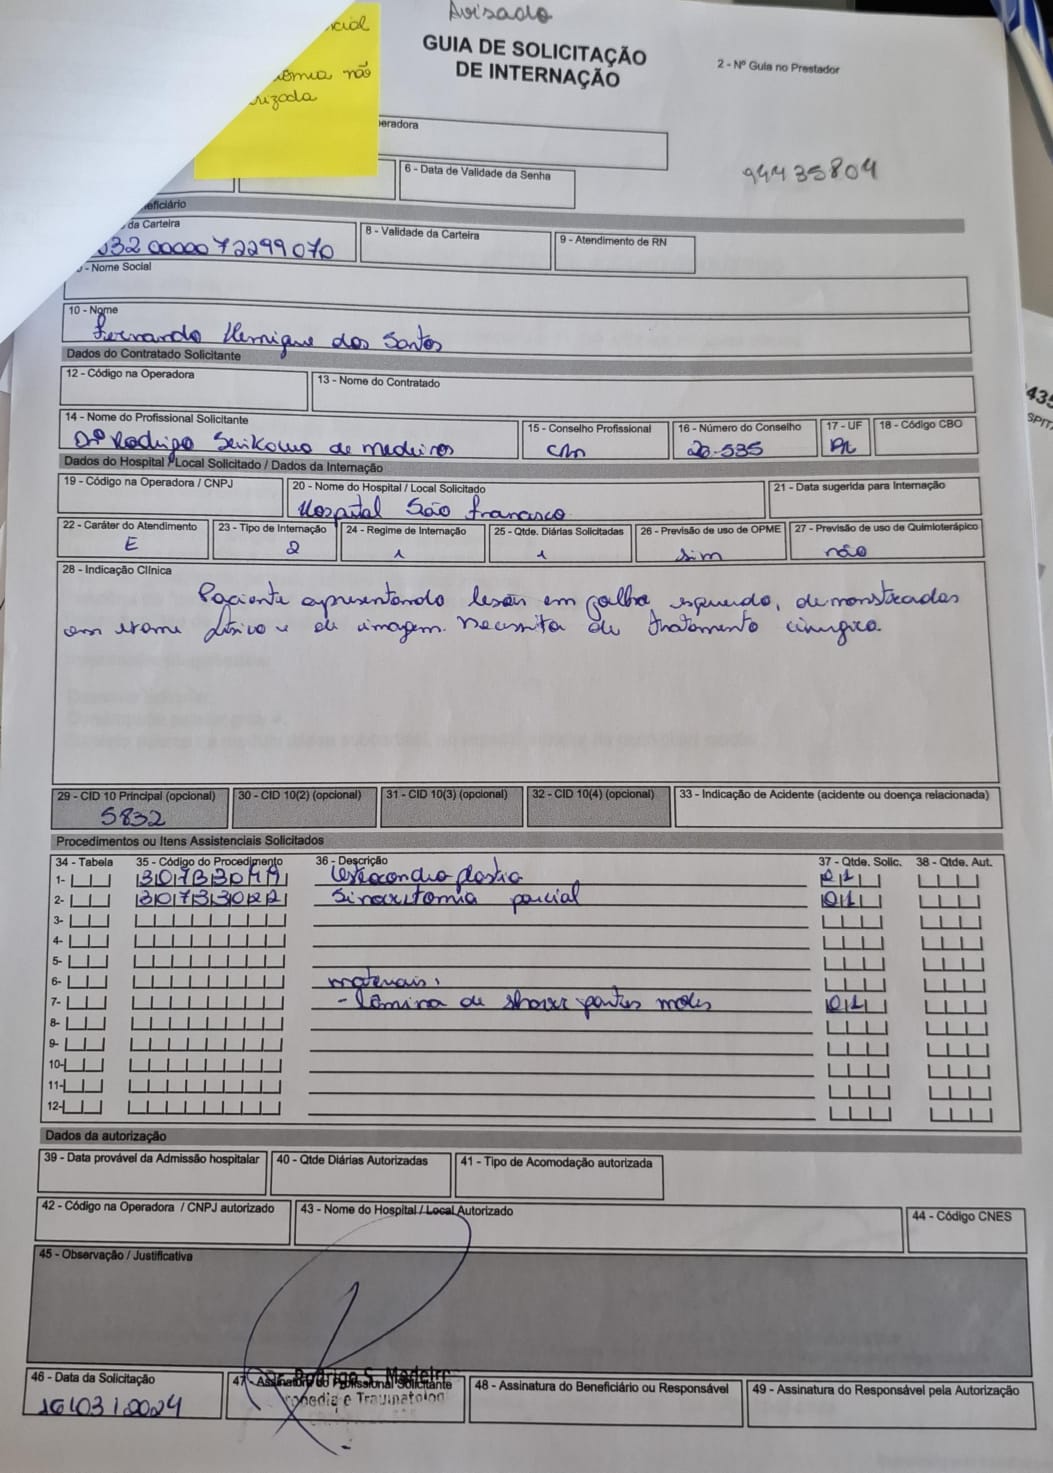 Avisado
GUIA DE SOLICITAÇÃO
DE INTERNAÇÃO
2 - Nº Guia no Prestador
cial
não
rizada
eradora
6 - Data de Validade da Senha
94435804
eficiário
da Carteira
8 - Validade da Carteira
9 - Atendimento de RN
032 0000072299070
- Nome Social
10 - Nome
Fernando Henrique dos Santos
Dados do Contratado Solicitante
12 - Código na Operadora
13 - Nome do Contratado
14 - Nome do Profissional Solicitante
15 - Conselho Profissional
16 - Número do Conselho
17 - UF
18 - Código CBO
Drº Rodrigo de Medeiros
CRM
20.535
Dados do Hospital / Local Solicitado / Dados da Internação
19 - Código na Operadora / CNPJ
20 - Nome do Hospital / Local Solicitado
21 - Data sugerida para Internação
Hospital São Francisco
22 - Caráter do Atendimento
23 - Tipo de Internação
24 - Regime de Internação
25 - Qtde. Diárias Solicitadas
26 - Previsão de uso de OPME
27 - Previsão de uso de Quimioterápico
E
2
1
1
Sim
não
28 - Indicação Clínica
Paciente apresentando lesão em joelho esquerdo, demonstradas
em exame físico e de imagem. Necessita de tratamento cirurgico.
29 - CID 10 Principal (opcional)
30 - CID 10(2) (opcional)
31 - CID 10(3) (opcional)
32 - CID 10(4) (opcional)
33 - Indicação de Acidente (acidente ou doença relacionada)
S832
Procedimentos ou Itens Assistenciais Solicitados
34 - Tabela
35 - Código do Procedimento
36 - Descrição
37 - Qtde. Solic.
38 - Qtde. Aut.
1-
osteocondroplastia
01
2-
30733022
Sinovectomia parcial
01
3-
4-
5-
6-
materiais:
7-
- Lâmina de shaver partes moles
01
8-
9-
10-
11-
12-
Dados da autorização
39 - Data provável da Admissão hospitalar
40 - Qtde Diárias Autorizadas
41 - Tipo de Acomodação autorizada
42 - Código na Operadora / CNPJ autorizado
43 - Nome do Hospital / Local Autorizado
44 - Código CNES
45 - Observação / Justificativa
46 - Data da Solicitação
47 - Assinatura do Profissional Solicitante
48 - Assinatura do Beneficiário ou Responsável
49 - Assinatura do Responsável pela Autorização
Rodrigo S. Medeir
opedia e Traumatolog
16/03/2024
435
SPIT